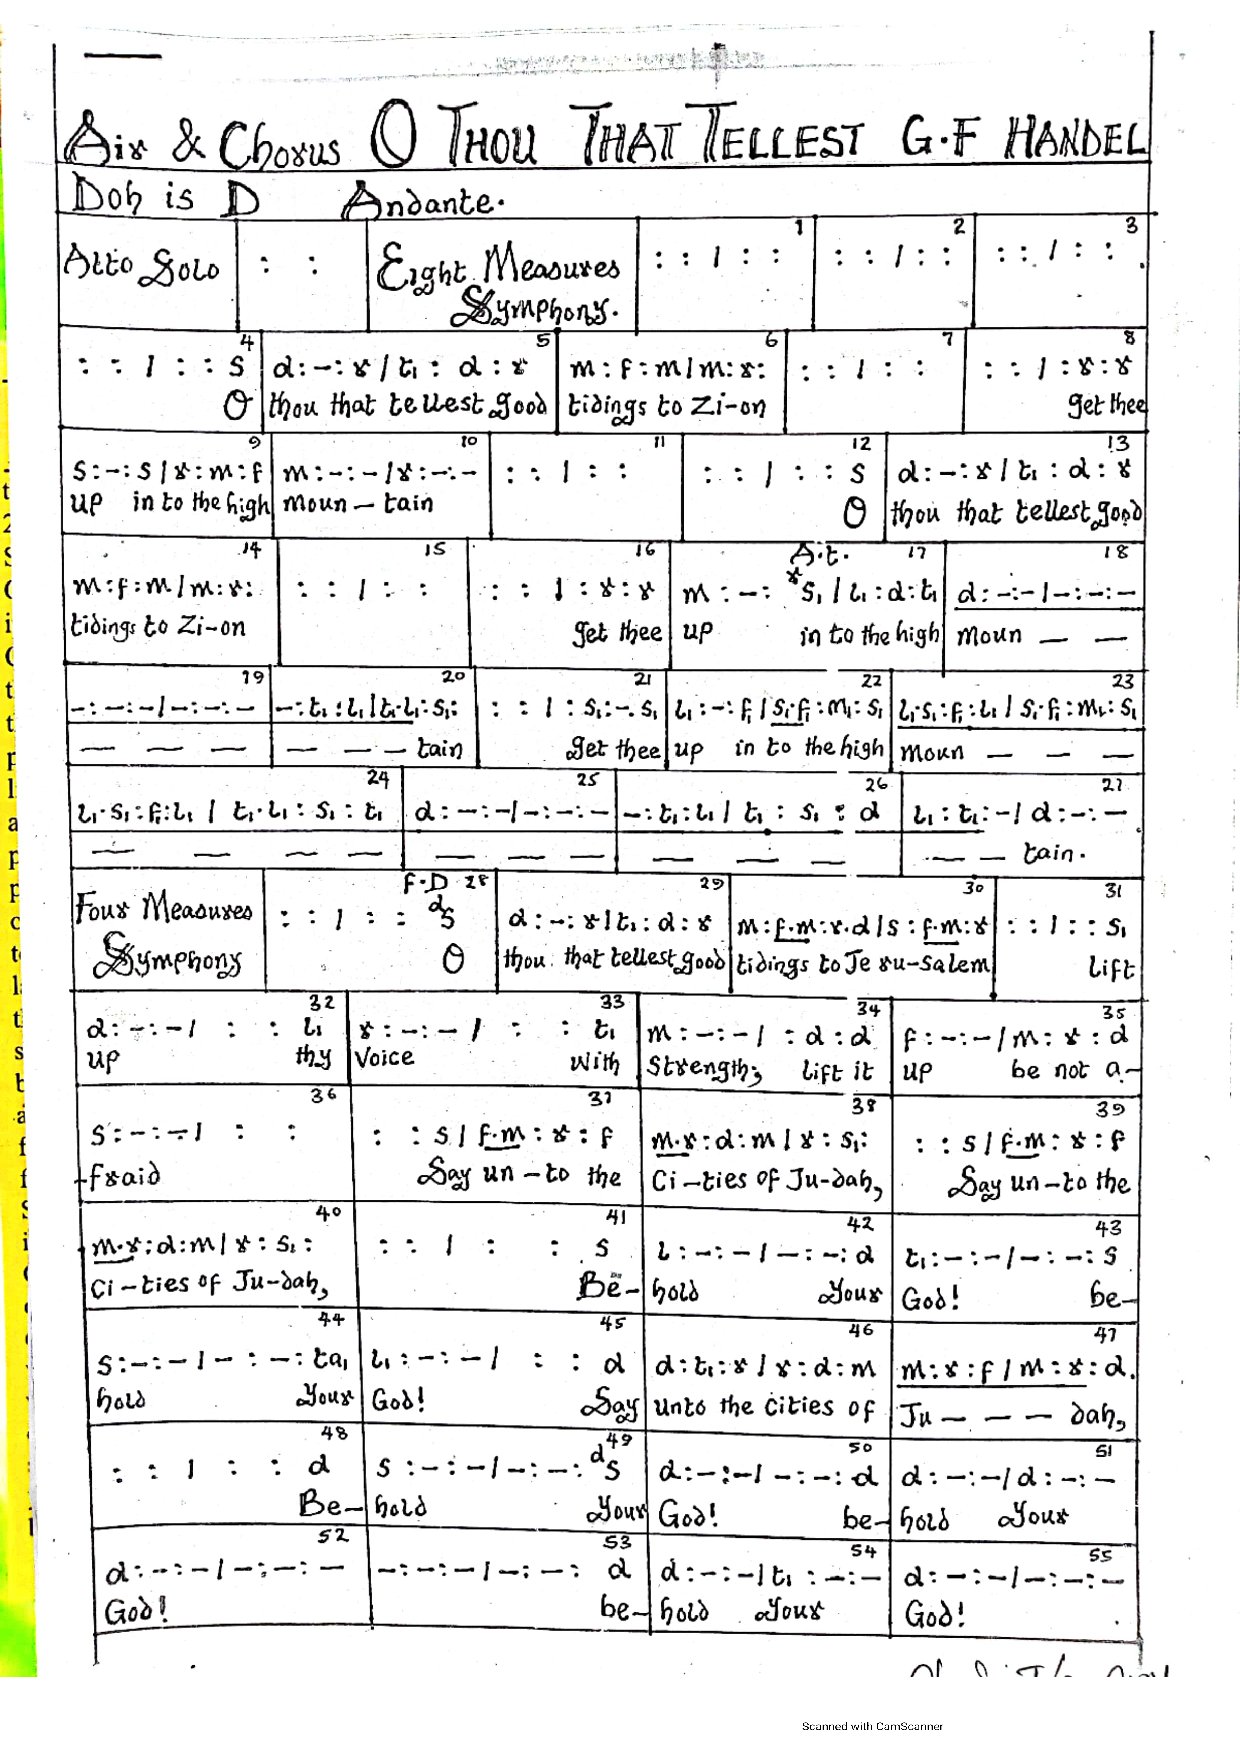 Air & Chorus O THOU THAT TELLEST G.F HANDEL
Doh is D Andante.
Alto Solo : : Eight Measures Symphony. : : / : : 1 : : / : : 2 : : / : : 3
4 5 6 7 8
: : / : : s d:-:r/t₁:d:r m:f:m/m:r: : : / : : : : / :r:r
O thou that tellest good tidings to Zi-on get thee
9 10 11 12 13
s:-:s/r:m:f m:-:-/r:-:- : : / : : : : / : : s d:-:r/t₁:d:r
up in to the high moun – tain O thou that tellest good
14 15 16 A.t. 17 18
m:f:m/m:r: : : / : : : : / :r:r m:-: ʳs₁/l₁:d:t₁ d:-:-/-:-:-
tidings to Zi-on get thee up in to the high moun — —
19 20 21 22 23
-:-:-/-:-:- -:t₁:l₁/t₁.l₁:s₁: : : / :s₁:-.s₁ l₁:-:f₁/s₁.f₁:m₁:s₁ l₁.s₁:f₁:l₁/s₁.f₁:m₁:s₁
— — — — — — tain get thee up in to the high moun — —
24 25 26 27
l₁.s₁:f₁:l₁/t₁.l₁:s₁:t₁ d:-:-/-:-:- -:t₁:l₁/t₁:s₁:d l₁:t₁:-/d:-:-
— — — — — — — — — — — — tain.
F.D 28 29 30 31
Four Measures Symphony : : / : : ᵈs d:-:r/t₁:d:r m:f.m:r.d/s:f.m:r : : / : : s₁
O thou that tellest good tidings to Je ru-salem lift
32 33 34 35
d:-:-/ : : l₁ r:-:-/ : : t₁ m:-:-/ :d:d f:-:-/m:r:d
up thy Voice with Strength; lift it up be not a-
36 37 38 39
s:-:-/ : : : : s/f.m:r:f m.r:d:m/r:s₁: : : s/f.m:r:f
fraid Say un–to the Ci–ties of Ju-dah, Say un–to the
40 41 42 43
m.r:d:m/r:s₁: : : / : : s l:-:-/-:-:d t₁:-:-/-:-:s
Ci–ties of Ju-dah, Be- hold Your God! be-
44 45 46 47
s:-:-/-:-:ta₁ l₁:-:-/ : : d d:t₁:r/r:d:m m:r:f/m:r:d.
hold Your God! Say unto the cities of Ju – – – dah,
48 49 50 51
: : / : : d s:-:-/-:-: ᵈs d:-:-/-:-:d d:-:-/d:-:-
Be- hold Your God! be- hold Your
52 53 54 55
d:-:-/-:-:- -:-:-/-:-:d d:-:-/t₁:-:- d:-:-/-:-:-
God! be- hold Your God!
Scanned with CamScanner